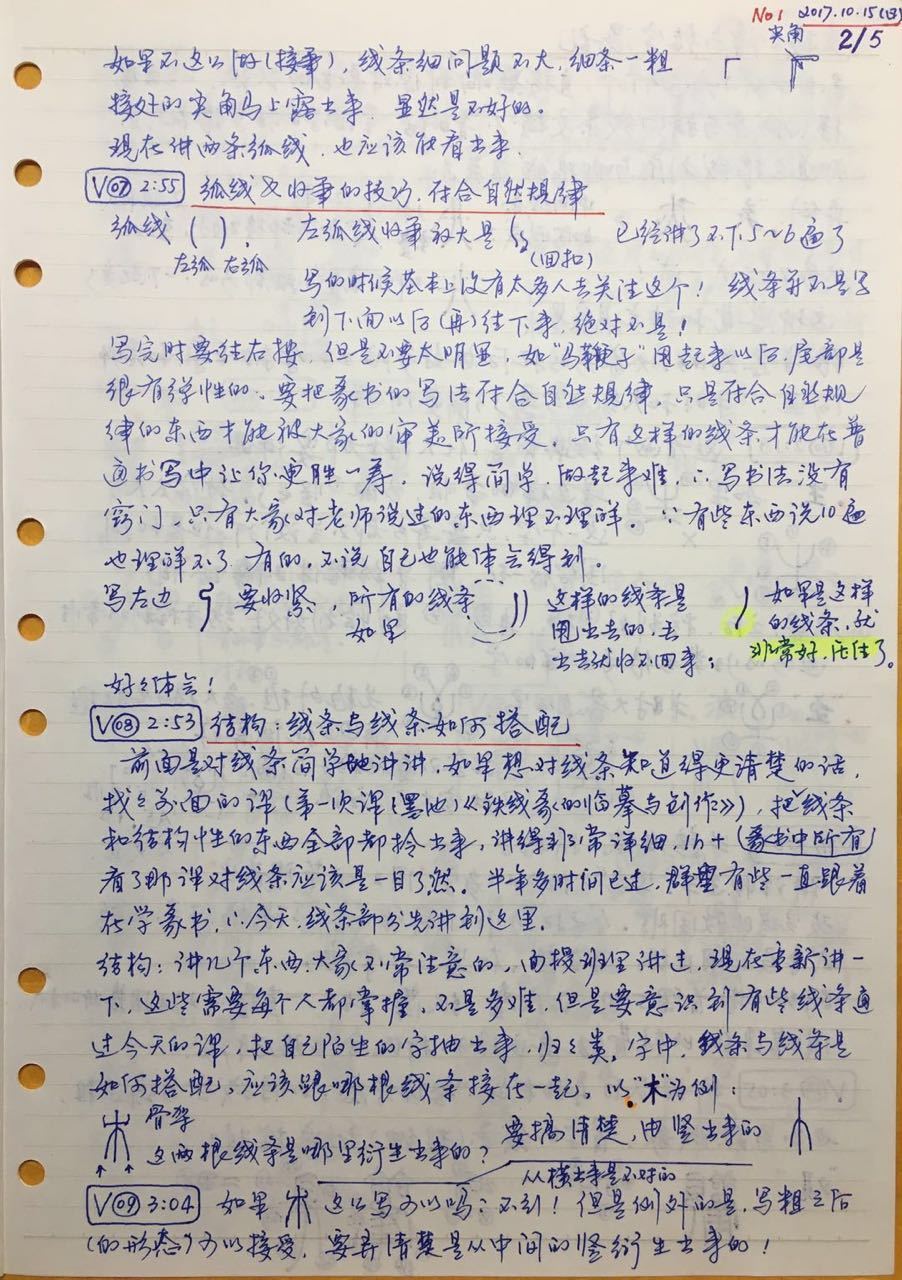 No1 2017.10.15(日)
实角 2/5
如果不这么切(接笔),线条细问题不大,细条一粗
接好的实角马上露出来,显然是不好的。
现在讲两条弧线,也应该能看出来.
V07 2:55 弧线及收笔的技巧,符合自然规律
弧线 ( ) , 左弧线收笔放大是 已经讲了不下5~6遍了
左弧 右弧 (回扣)
写的时候基本上没有太多人去关注这个! 线条并不是写
到下面以后(再)往下来,绝对不是!
写完时要往右搂,但是不要太明显,如"马鞭子"甩起来以后,底部是
很有弹性的∵要把篆书的写法符合自然规律,只是符合自然规
律的东西才能被大家的审美所接受,只有这样的线条才能在普
通书写中让你更胜一筹,说得简单,做起来难,∴写书法没有
窍门,只有大家对老师说过的东西理不理解。∵有些东西说10遍
也理解不了,有的,不说自己也能体会得到。
写左边 要收紧,所有的线条 这样的线条是 如果是这样
如果 甩出去的,丢 的线条,就
出去就收不回来; 非常好,压住了。
好好体会!
V08 2:53 结构:线条与线条如何搭配
前面是对线条简单地讲讲,如果想对线条知道得更清楚的话,
找找前面的课(第一次课(墨池)《铁线篆的临摹与创作》),把线条
和结构中性的东西全部都拎出来,讲得非常详细,1h+(篆书中所有)
看了那课对线条应该是一目了然。半年多时间已过,群里有些一直跟着
在学篆书,∴今天,线条部分先讲到这里.
结构:讲几个东西,大家不常注意的,面授班里讲过,现在重新讲一
下,这些需要每个人都掌握,不是多难,但是要意识到有些线条通
过今天的课,把自己陌生的字抽出来,归归类,字中,线条与线条是
如何搭配,应该跟哪根线条接在一起,以"木"为例:
骨架
这两根线条是哪里衍生出来的? 要搞清楚,由竖出来的
从横出来是不对的
V09 3:04 如果 这么写可以吗:不行! 但是例外的是,写粗之后
(的形态)可以接受,要弄清楚是从中间的竖衍生出来的!